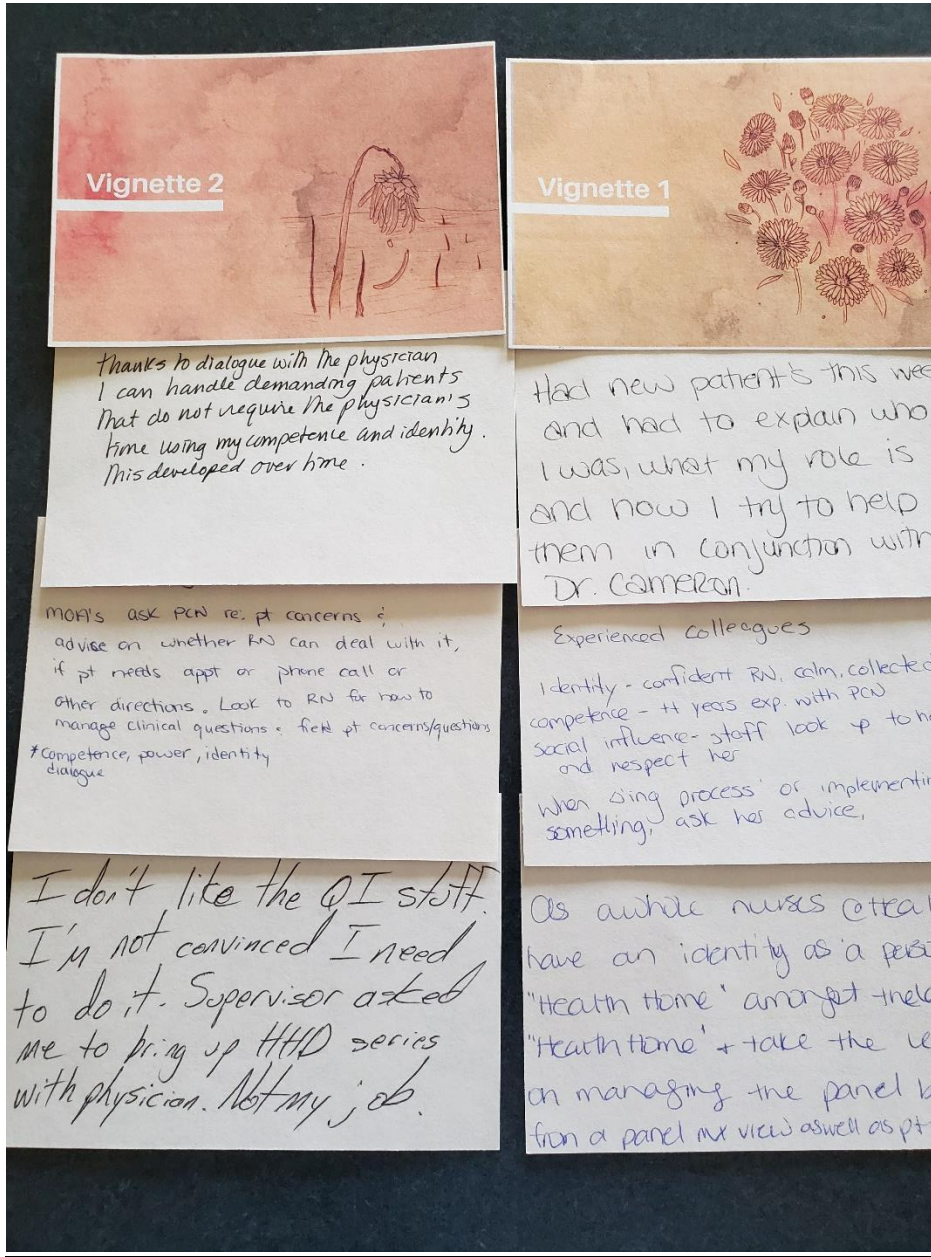 Vignette 2
thanks to dialogue with the physician
I can handle demanding patients
that do not require the physician's
time using my competence and identity.
This developed over time.
MOA's ask PCN re: pt concerns &
advise on whether RN can deal with it,
if pt needs appt or phone call or
other directions. Look to RN for how to
manage clinical questions & field pt concerns/questions
*competence, power, identity
dialogue
I don't like the QI stuff.
I'm not convinced I need
to do it. Supervisor asked
me to bring up HHD series
with physician. Not my job.
Vignette 1
Had new patient's this wee
and had to explain who
I was, what my role is
and how I try to help
them in conjunction with
Dr. Cameron.
Experienced Colleagues
Identity - confident RN, calm, collected
competence - years exp. with PCN
social influence - staff look up to he
and respect her
when process or implementin
something, ask her advice,
As a whole nurses
have an identity as a
"Health Home" amongst
"Health Home" + take the
on managing the panel
from a panel view aswell as pt